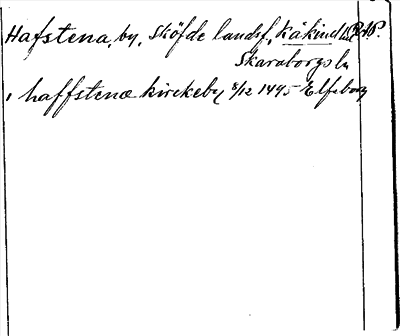 Hafstena, by, Sköfde landsf, Kåkinds
Skaraborgs ln
i haffstena kirckeby 8/12 1495 Elfsborg